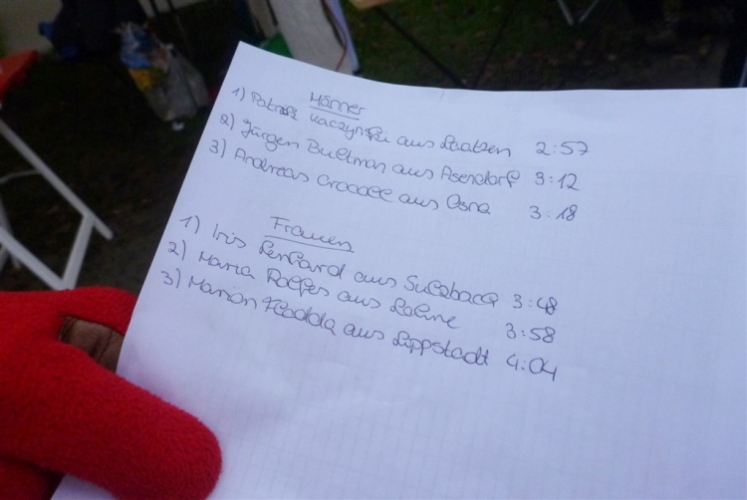 Männer
1) Patrick Kaczynski aus Laatzen 2:57
2) Jürgen Bultman aus Asendorf 3:12
3) Andreas aus Osna 3:18
Frauen
1) Iris Lenhard aus Sulzbach 3:48
2) Maria Rolfes aus Lohne 3:58
3) Marion aus Lippstadt 4:04